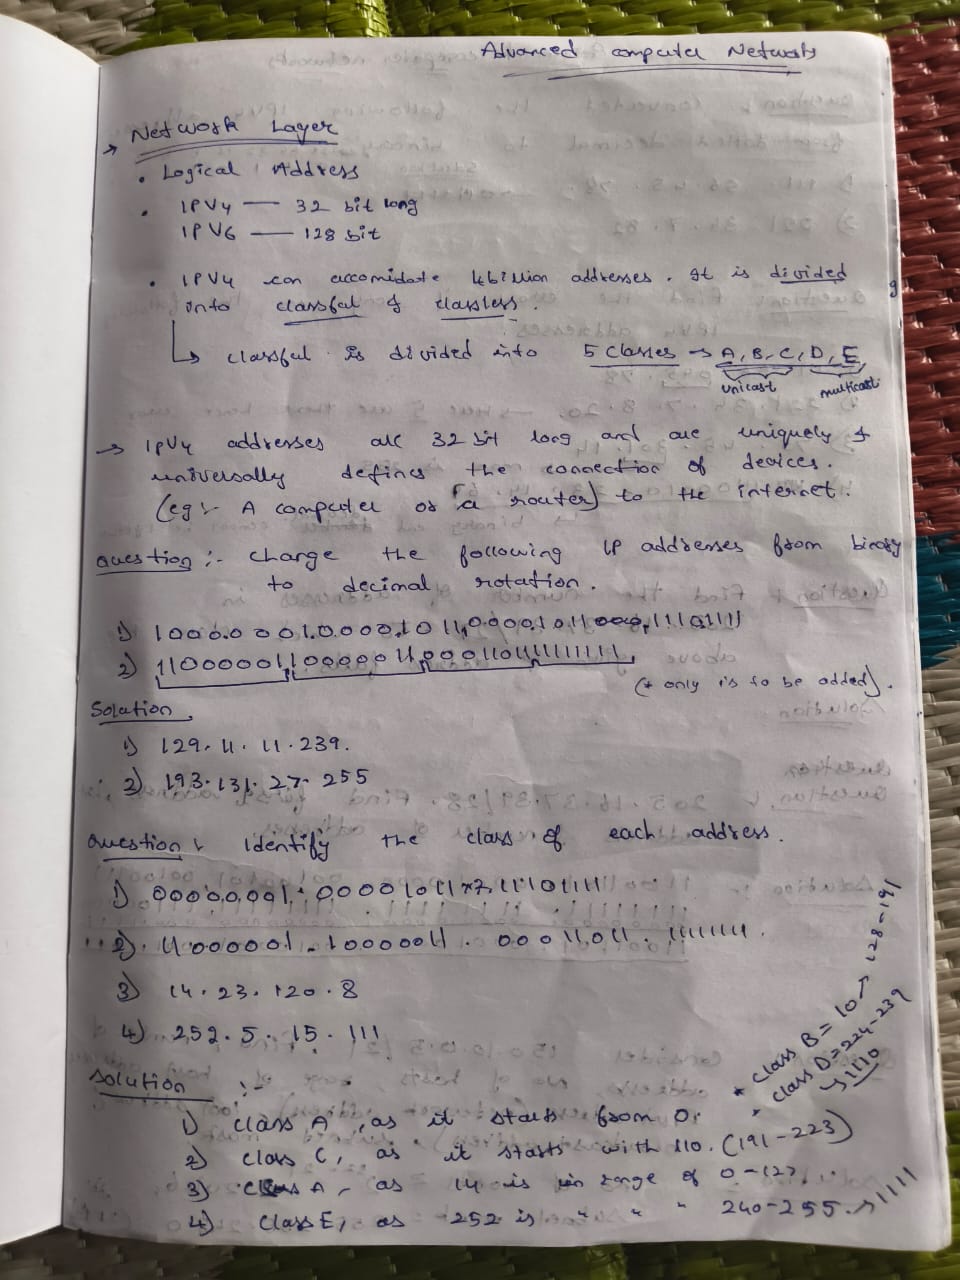 Advanced computer Networks
→ Network Layer
• Logical Address
• IPV4 — 32 bit long
IPV6 — 128 bit
• IPV4 can accomidate 4billion addresses. It is divided
into classful & classless.
↳ classful is divided into 5 classes → A, B, C, D, E
unicast multicast
→ IPV4 addresses are 32 bit long and are uniquely &
universally defines the connection of devices.
(eg :- A computer or a router) to the internet.
Question :- change the following IP addresses from binary
to decimal notation.
1) 10000001.00001011.00001011.11101111
2) 11000001100000110001101111111111
(* only 1's to be added).
Solution
1) 129.11.11.239.
2) 193.131.27.255
Question :- Identify the class of each address.
1) 00000001. 00001011 11101111
2) 11000001. 10000011. 00011011. 11111111.
3) 14.23.120.8
4) 252.5.15.111
* class B = 10 → 128-191
* class D = 224-239
↳ 1110
Solution :-
1) class A, as it starts from 0.
2) class C, as it starts with 110. (191-223)
3) class A, as 14 is in range of 0-127
4) class E, as 252 is " " " 240-255. → 1111